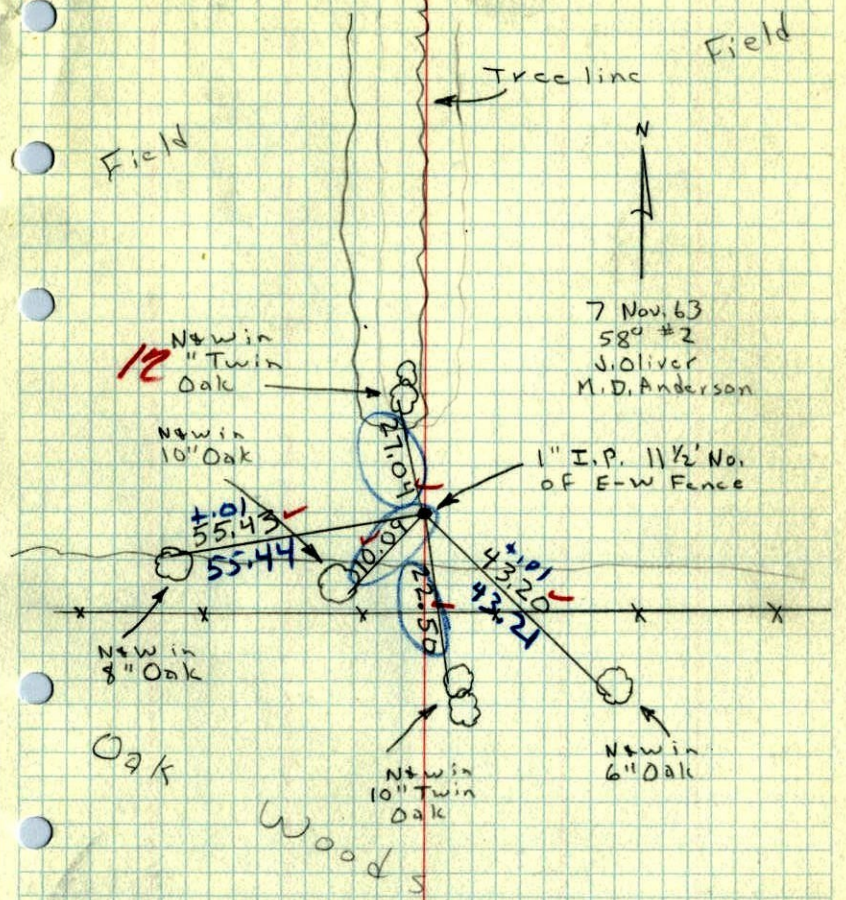 Field
Tree line
Field
N
7 Nov. 63
58° #2
J. Oliver
M. D. Anderson
N&W in
12 " Twin
Oak
N&W in
10" Oak
27.04
1" I.P. 11 ½' No.
of E-W Fence
±.01
55.43
55.44
10.09
22.50
±.01
43.20
43.21
N&W in
8" Oak
N&W in
10" Twin
Oak
N&W in
6" Oak
Oak
Woods